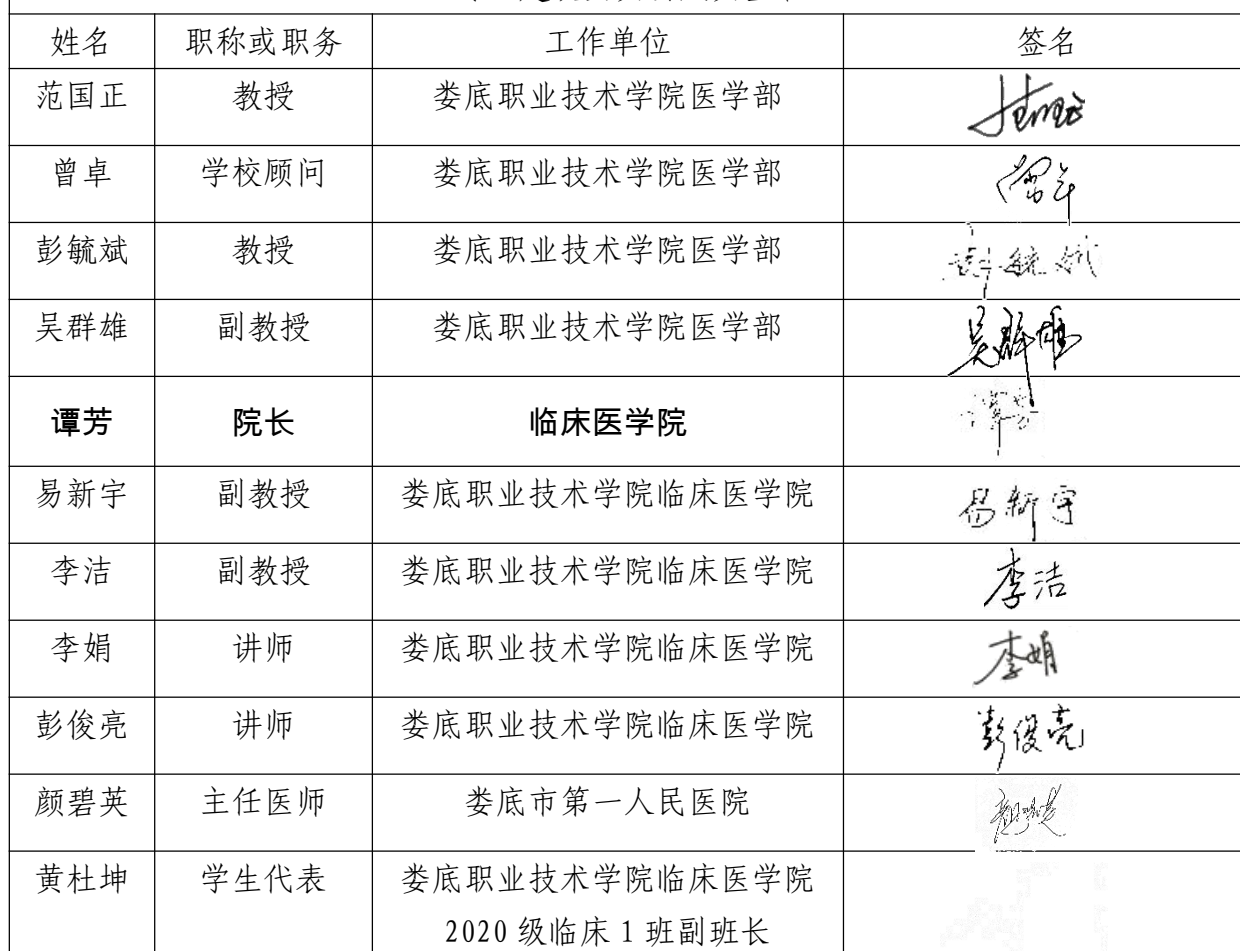 姓名 职称或职务 工作单位 签名
范国正 教授 娄底职业技术学院医学部
曾卓 学校顾问 娄底职业技术学院医学部
彭毓斌 教授 娄底职业技术学院医学部 彭毓斌
吴群雄 副教授 娄底职业技术学院医学部 吴群雄
谭芳 院长 临床医学院 谭芳
易新宇 副教授 娄底职业技术学院临床医学院 易新宇
李洁 副教授 娄底职业技术学院临床医学院 李洁
李娟 讲师 娄底职业技术学院临床医学院 李娟
彭俊亮 讲师 娄底职业技术学院临床医学院 彭俊亮
颜碧英 主任医师 娄底市第一人民医院
黄杜坤 学生代表 娄底职业技术学院临床医学院
2020 级临床 1 班副班长